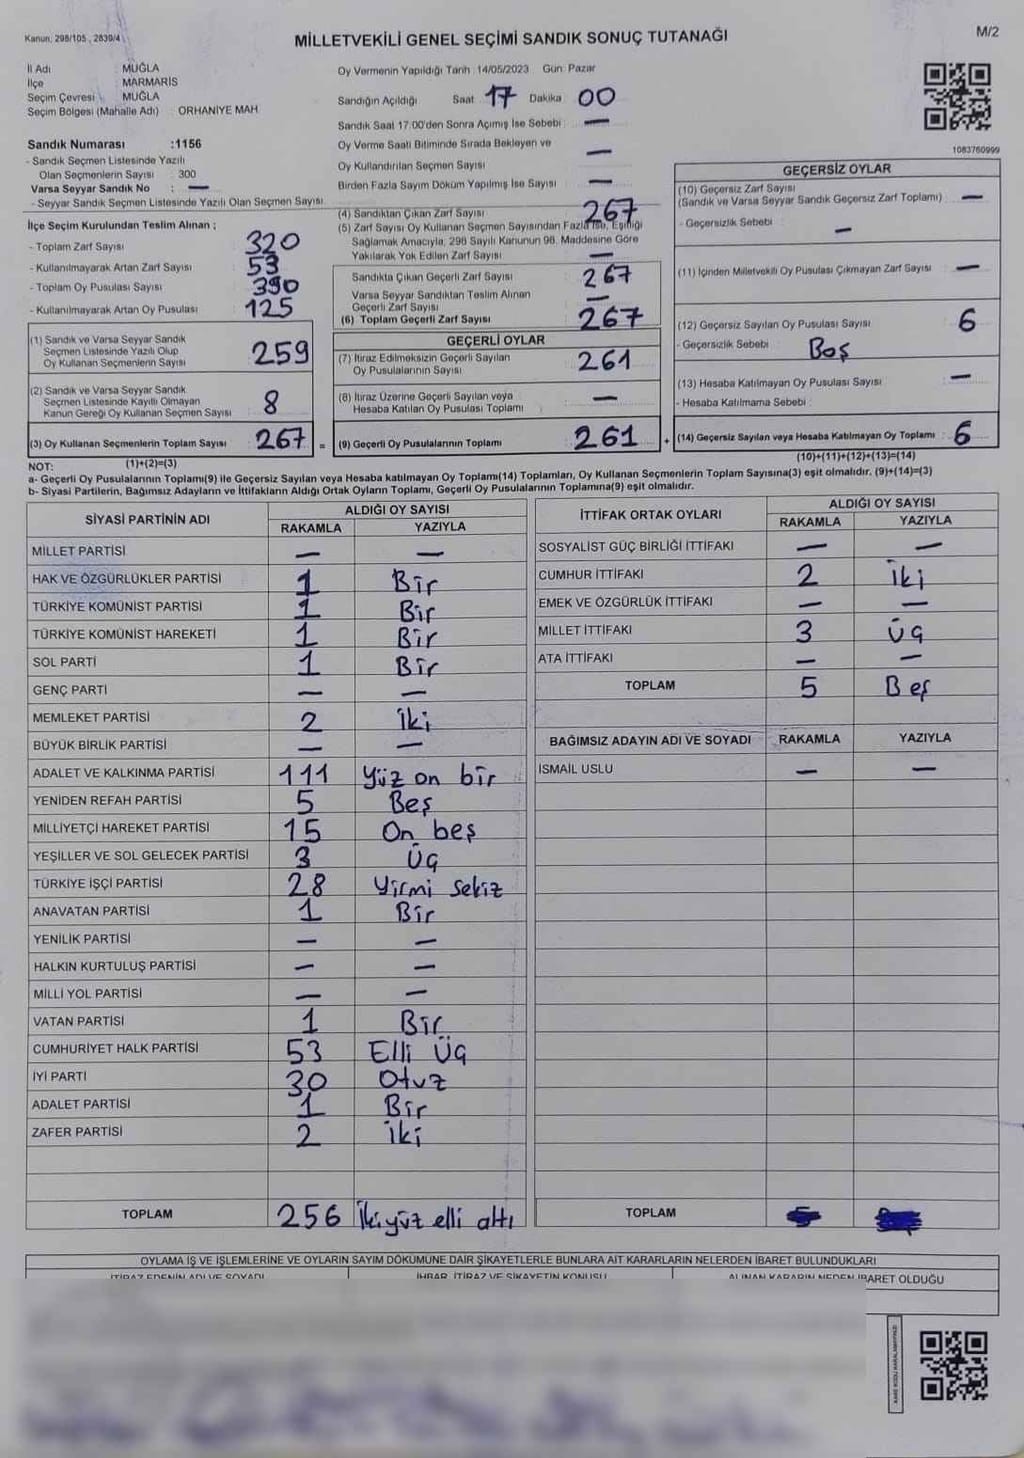 Kanun: 298/105 , 2839/4
MİLLETVEKİLİ GENEL SEÇİMİ SANDIK SONUÇ TUTANAĞI
M/2
İl Adı MUĞLA
İlçe MARMARİS
Seçim Çevresi MUĞLA
Seçim Bölgesi (Mahalle Adı) ORHANİYE MAH
Sandık Numarası :1156
- Sandık Seçmen Listesinde Yazılı
Olan Seçmenlerin Sayısı : 300
Varsa Seyyar Sandık No : —
- Seyyar Sandık Seçmen Listesinde Yazılı Olan Seçmen Sayısı
İlçe Seçim Kurulundan Teslim Alınan ;
- Toplam Zarf Sayısı 320
- Kullanılmayarak Artan Zarf Sayısı 53
- Toplam Oy Pusulası Sayısı 390
- Kullanılmayarak Artan Oy Pusulası 125
(1) Sandık ve Varsa Seyyar Sandık
Seçmen Listesinde Yazılı Olup
Oy Kullanan Seçmenlerin Sayısı 259
(2) Sandık ve Varsa Seyyar Sandık
Seçmen Listesinde Kayıtlı Olmayan
Kanun Gereği Oy Kullanan Seçmen Sayısı 8
(3) Oy Kullanan Seçmenlerin Toplam Sayısı 267 =
(1)+(2)=(3)
Oy Vermenin Yapıldığı Tarih :14/05/2023 Gün: Pazar
Sandığın Açıldığı Saat 17 Dakika 00
Sandık Saat 17:00'den Sonra Açılmış İse Sebebi : —
Oy Verme Saati Bitiminde Sırada Bekleyen ve
Oy Kullandırılan Seçmen Sayısı —
Birden Fazla Sayım Döküm Yapılmış İse Sayısı —
(4) Sandıktan Çıkan Zarf Sayısı 267
(5) Zarf Sayısı Oy Kullanan Seçmen Sayısından Fazla ise, Eşitliği
Sağlamak Amacıyla, 298 Sayılı Kanunun 98. Maddesine Göre
Yakılarak Yok Edilen Zarf Sayısı —
Sandıkta Çıkan Geçerli Zarf Sayısı 267
Varsa Seyyar Sandıktan Teslim Alınan
Geçerli Zarf Sayısı —
(6) Toplam Geçerli Zarf Sayısı 267
GEÇERLİ OYLAR
(7) İtiraz Edilmeksizin Geçerli Sayılan
Oy Pusulalarının Sayısı 261
(8) İtiraz Üzerine Geçerli Sayılan veya
Hesaba Katılan Oy Pusulası Toplamı —
(9) Geçerli Oy Pusulalarının Toplamı 261 +
1083760999
GEÇERSİZ OYLAR
(10) Geçersiz Zarf Sayısı
(Sandık ve Varsa Seyyar Sandık Geçersiz Zarf Toplamı) —
- Geçersizlik Sebebi : —
(11) İçinden Milletvekili Oy Pusulası Çıkmayan Zarf Sayısı —
(12) Geçersiz Sayılan Oy Pusulası Sayısı 6
- Geçersizlik Sebebi : Boş
(13) Hesaba Katılmayan Oy Pusulası Sayısı —
- Hesaba Katılmama Sebebi :
(14) Geçersiz Sayılan veya Hesaba Katılmayan Oy Toplamı : 6
(10)+(11)+(12)+(13)=(14)
NOT:
a- Geçerli Oy Pusulalarının Toplamı(9) ile Geçersiz Sayılan veya Hesaba katılmayan Oy Toplamı(14) Toplamları, Oy Kullanan Seçmenlerin Toplam Sayısına(3) eşit olmalıdır. (9)+(14)=(3)
b- Siyasi Partilerin, Bağımsız Adayların ve İttifakların Aldığı Ortak Oyların Toplamı, Geçerli Oy Pusulalarının Toplamına(9) eşit olmalıdır.
SİYASİ PARTİNİN ADI ALDIĞI OY SAYISI
RAKAMLA YAZIYLA
MİLLET PARTİSİ — —
HAK VE ÖZGÜRLÜKLER PARTİSİ 1 Bir
TÜRKİYE KOMÜNİST PARTİSİ 1 Bir
TÜRKİYE KOMÜNİST HAREKETİ 1 Bir
SOL PARTİ 1 Bir
GENÇ PARTİ — —
MEMLEKET PARTİSİ 2 İki
BÜYÜK BİRLİK PARTİSİ — —
ADALET VE KALKINMA PARTİSİ 111 Yüz on bir
YENİDEN REFAH PARTİSİ 5 Beş
MİLLİYETÇİ HAREKET PARTİSİ 15 On beş
YEŞİLLER VE SOL GELECEK PARTİSİ 3 Üç
TÜRKİYE İŞÇİ PARTİSİ 28 Yirmi sekiz
ANAVATAN PARTİSİ 1 Bir
YENİLİK PARTİSİ — —
HALKIN KURTULUŞ PARTİSİ — —
MİLLİ YOL PARTİSİ — —
VATAN PARTİSİ 1 Bir
CUMHURİYET HALK PARTİSİ 53 Elli Üç
İYİ PARTİ 30 Otuz
ADALET PARTİSİ 1 Bir
ZAFER PARTİSİ 2 İki
TOPLAM 256 İkiyüz elli altı
İTTİFAK ORTAK OYLARI ALDIĞI OY SAYISI
RAKAMLA YAZIYLA
SOSYALİST GÜÇ BİRLİĞİ İTTİFAKI — —
CUMHUR İTTİFAKI 2 İki
EMEK VE ÖZGÜRLÜK İTTİFAKI — —
MİLLET İTTİFAKI 3 Üç
ATA İTTİFAKI — —
TOPLAM 5 Beş
BAĞIMSIZ ADAYIN ADI VE SOYADI RAKAMLA YAZIYLA
İSMAİL USLU — —
TOPLAM
OYLAMA İŞ VE İŞLEMLERİNE VE OYLARIN SAYIM DÖKÜMÜNE DAİR ŞİKAYETLERLE BUNLARA AİT KARARLARIN NELERDEN İBARET BULUNDUKLARI
İTİRAZ EDENİN ADI VE SOYADI İHBAR, İTİRAZ VE ŞİKAYETİN KONUSU ALINAN KARARIN NEDEN İBARET OLDUĞU